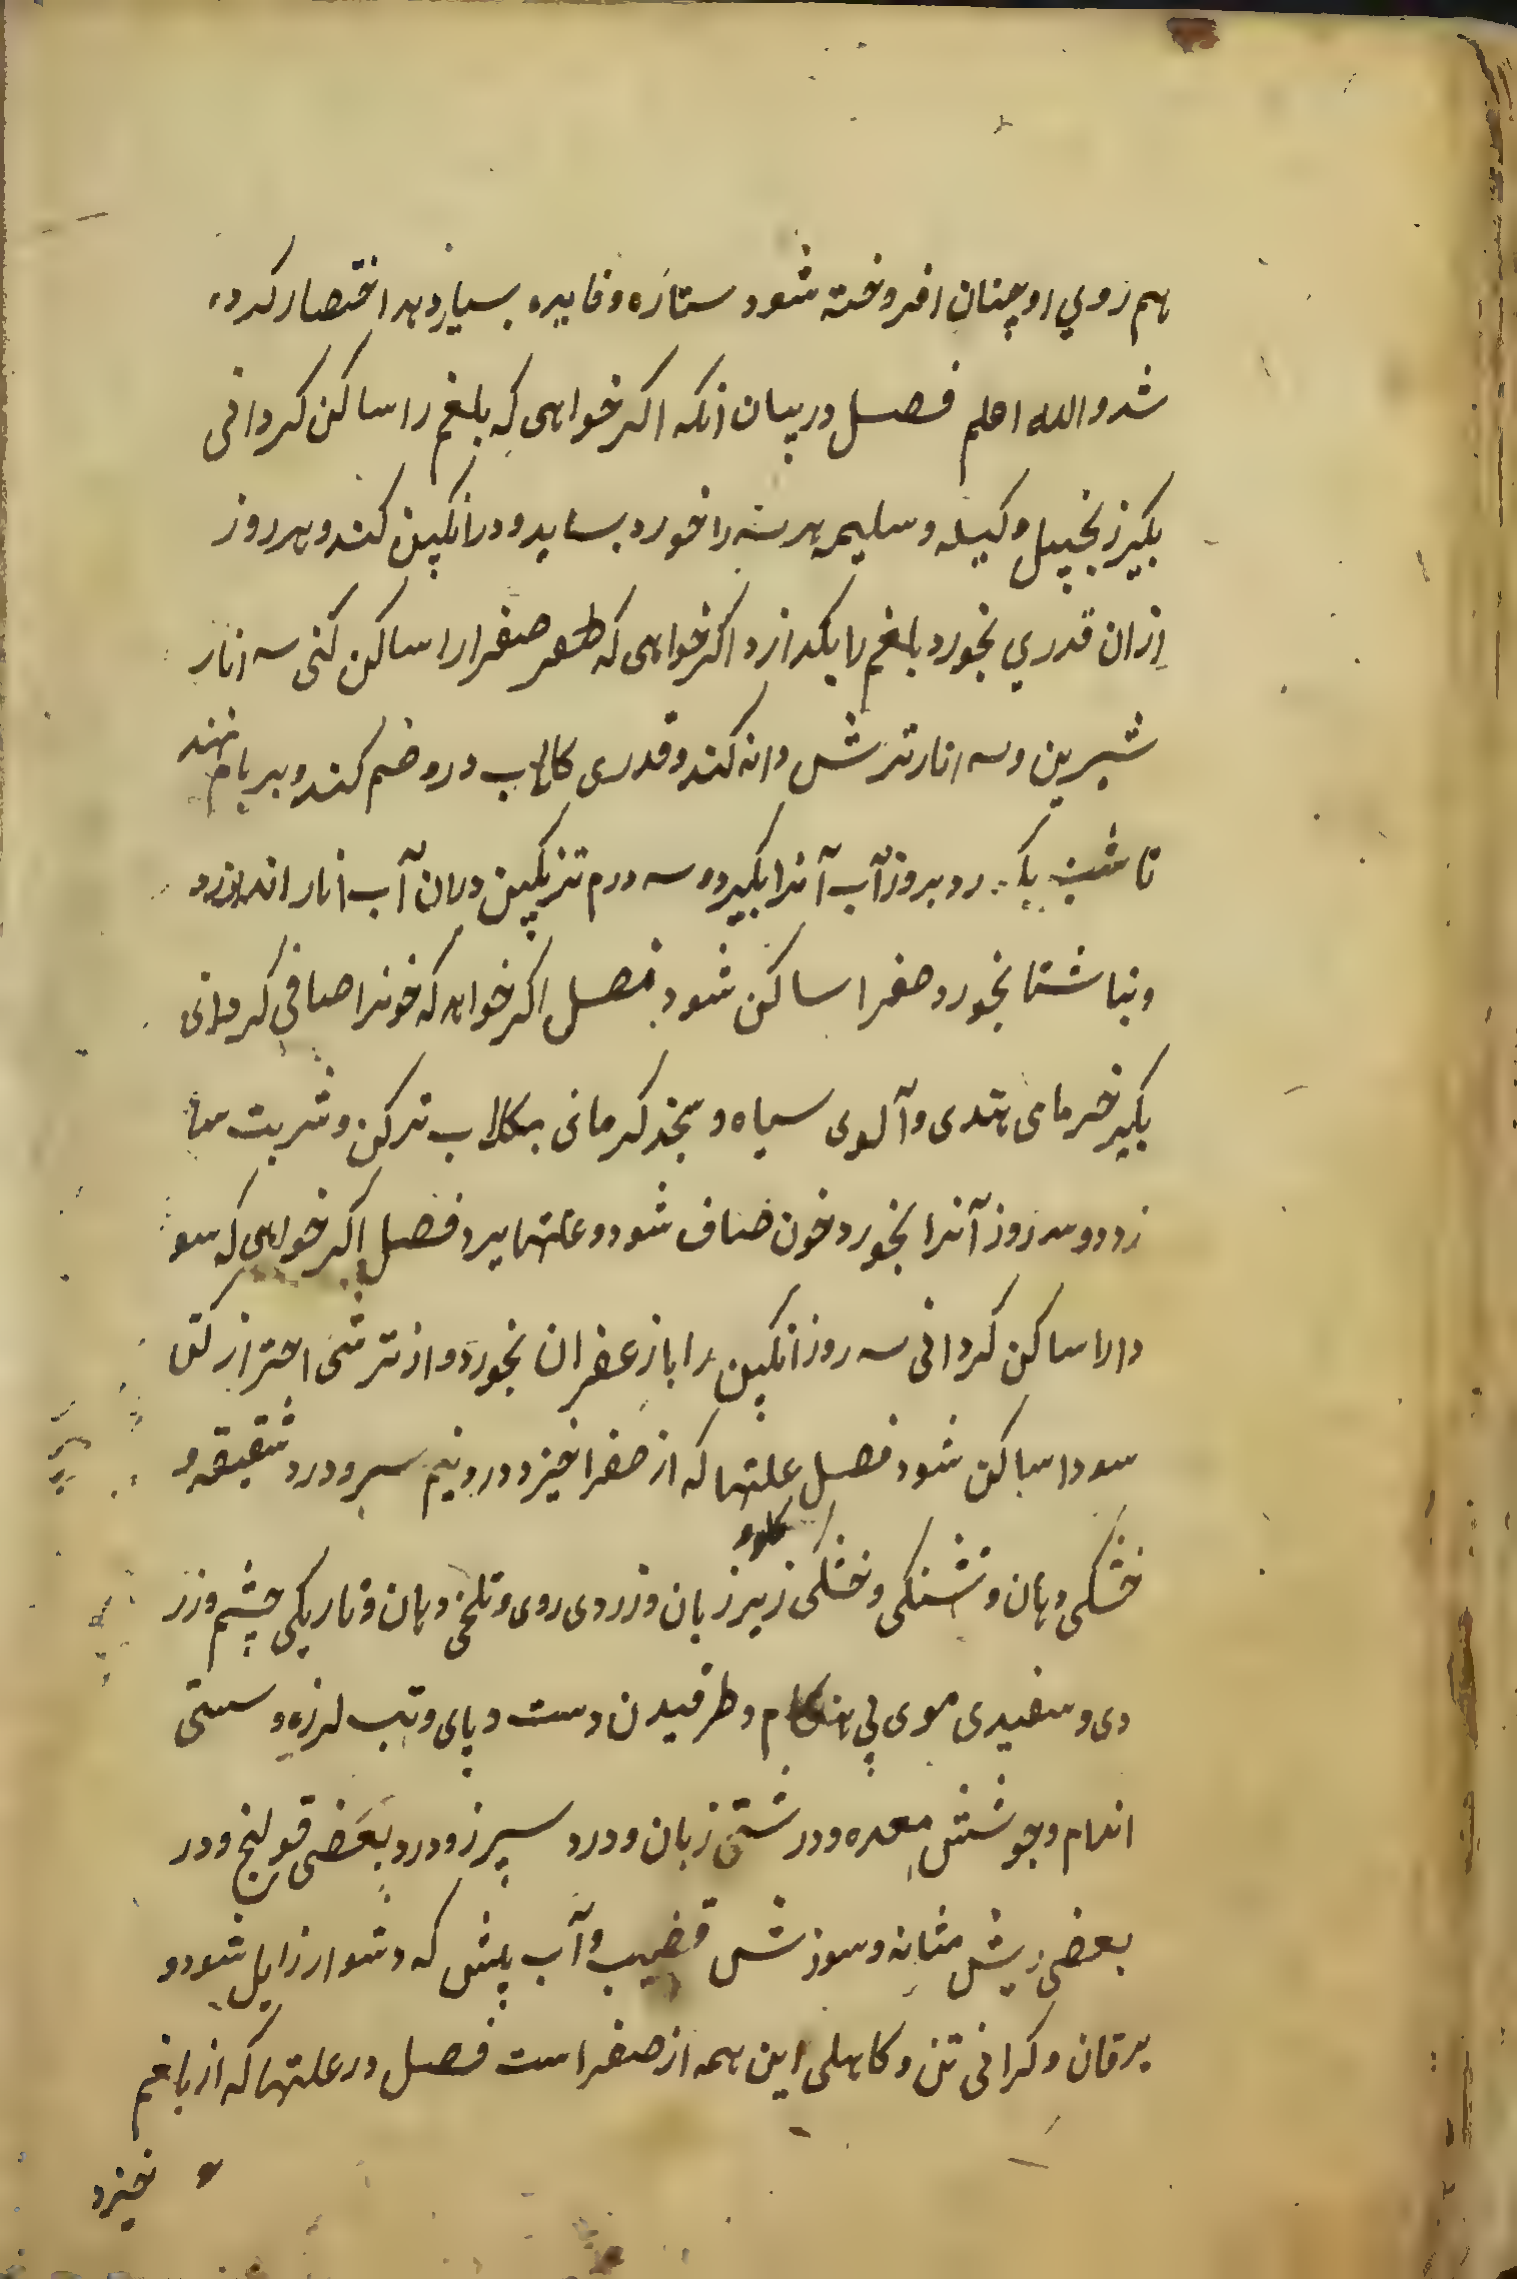 هم روي او چنان افروخته شود ستاره و فایده بسیار دهد اختصار کرده
شد والله اعلم فصل در بیان آنکه اکر خواهی که بلغم را ساکن کردانی
بکیر زنجبیل و کیله و سلیمه هر سه را خورد بساید و در انکبین کند و هر روز
ازان قدري بخورد بلغم را بکدازد اکر خواهی که صفرا را ساکن کنی سه انار
شیرین و سه انار ترش دانه کند و قدری کلاب درو ضم کند و بر بام نهند
تا شب بروز آب آنرا بکیرد و سه درم ترنکبین دران آب انار اندازد
و بناشتا بخورد صفرا ساکن شود فصل اکر خواهد که خونرا صافی کردانی
بکیر خرمای هندی و آلوی سیاه و سنجد کرمانی بکلاب تر کن و شربت سا
زد و سه روز آنرا بخورد خون صاف شود و علتها ببرد فصل اکر خواهی که سو
دا را ساکن کردانی سه روز انکبین را با زعفران بخورد و از ترشی احتراز کن
سودا ساکن شود فصل علتها که از صفرا خیزد درد نیم سر و درد شقیقه و
خشکی دهان و تشنکی و خشکی کلو زیر زبان و زردی روی و تلخی دهان و تاریکی چشم و زر
دی و سفیدی موی بی هنکام و طرقیدن دست و پای و تب لرزه و سستی
اندام و جوشش معده و درشتی زبان و درد سپرز و درد بعضی قولنج و در
بعضی ریش مثانه و سوزش قضیب و آب پشت که دشوار زایل شود و
یرقان و کرانی تن و کاهلی این همه از صفراست فصل در علتها که از بلغم
خیزد